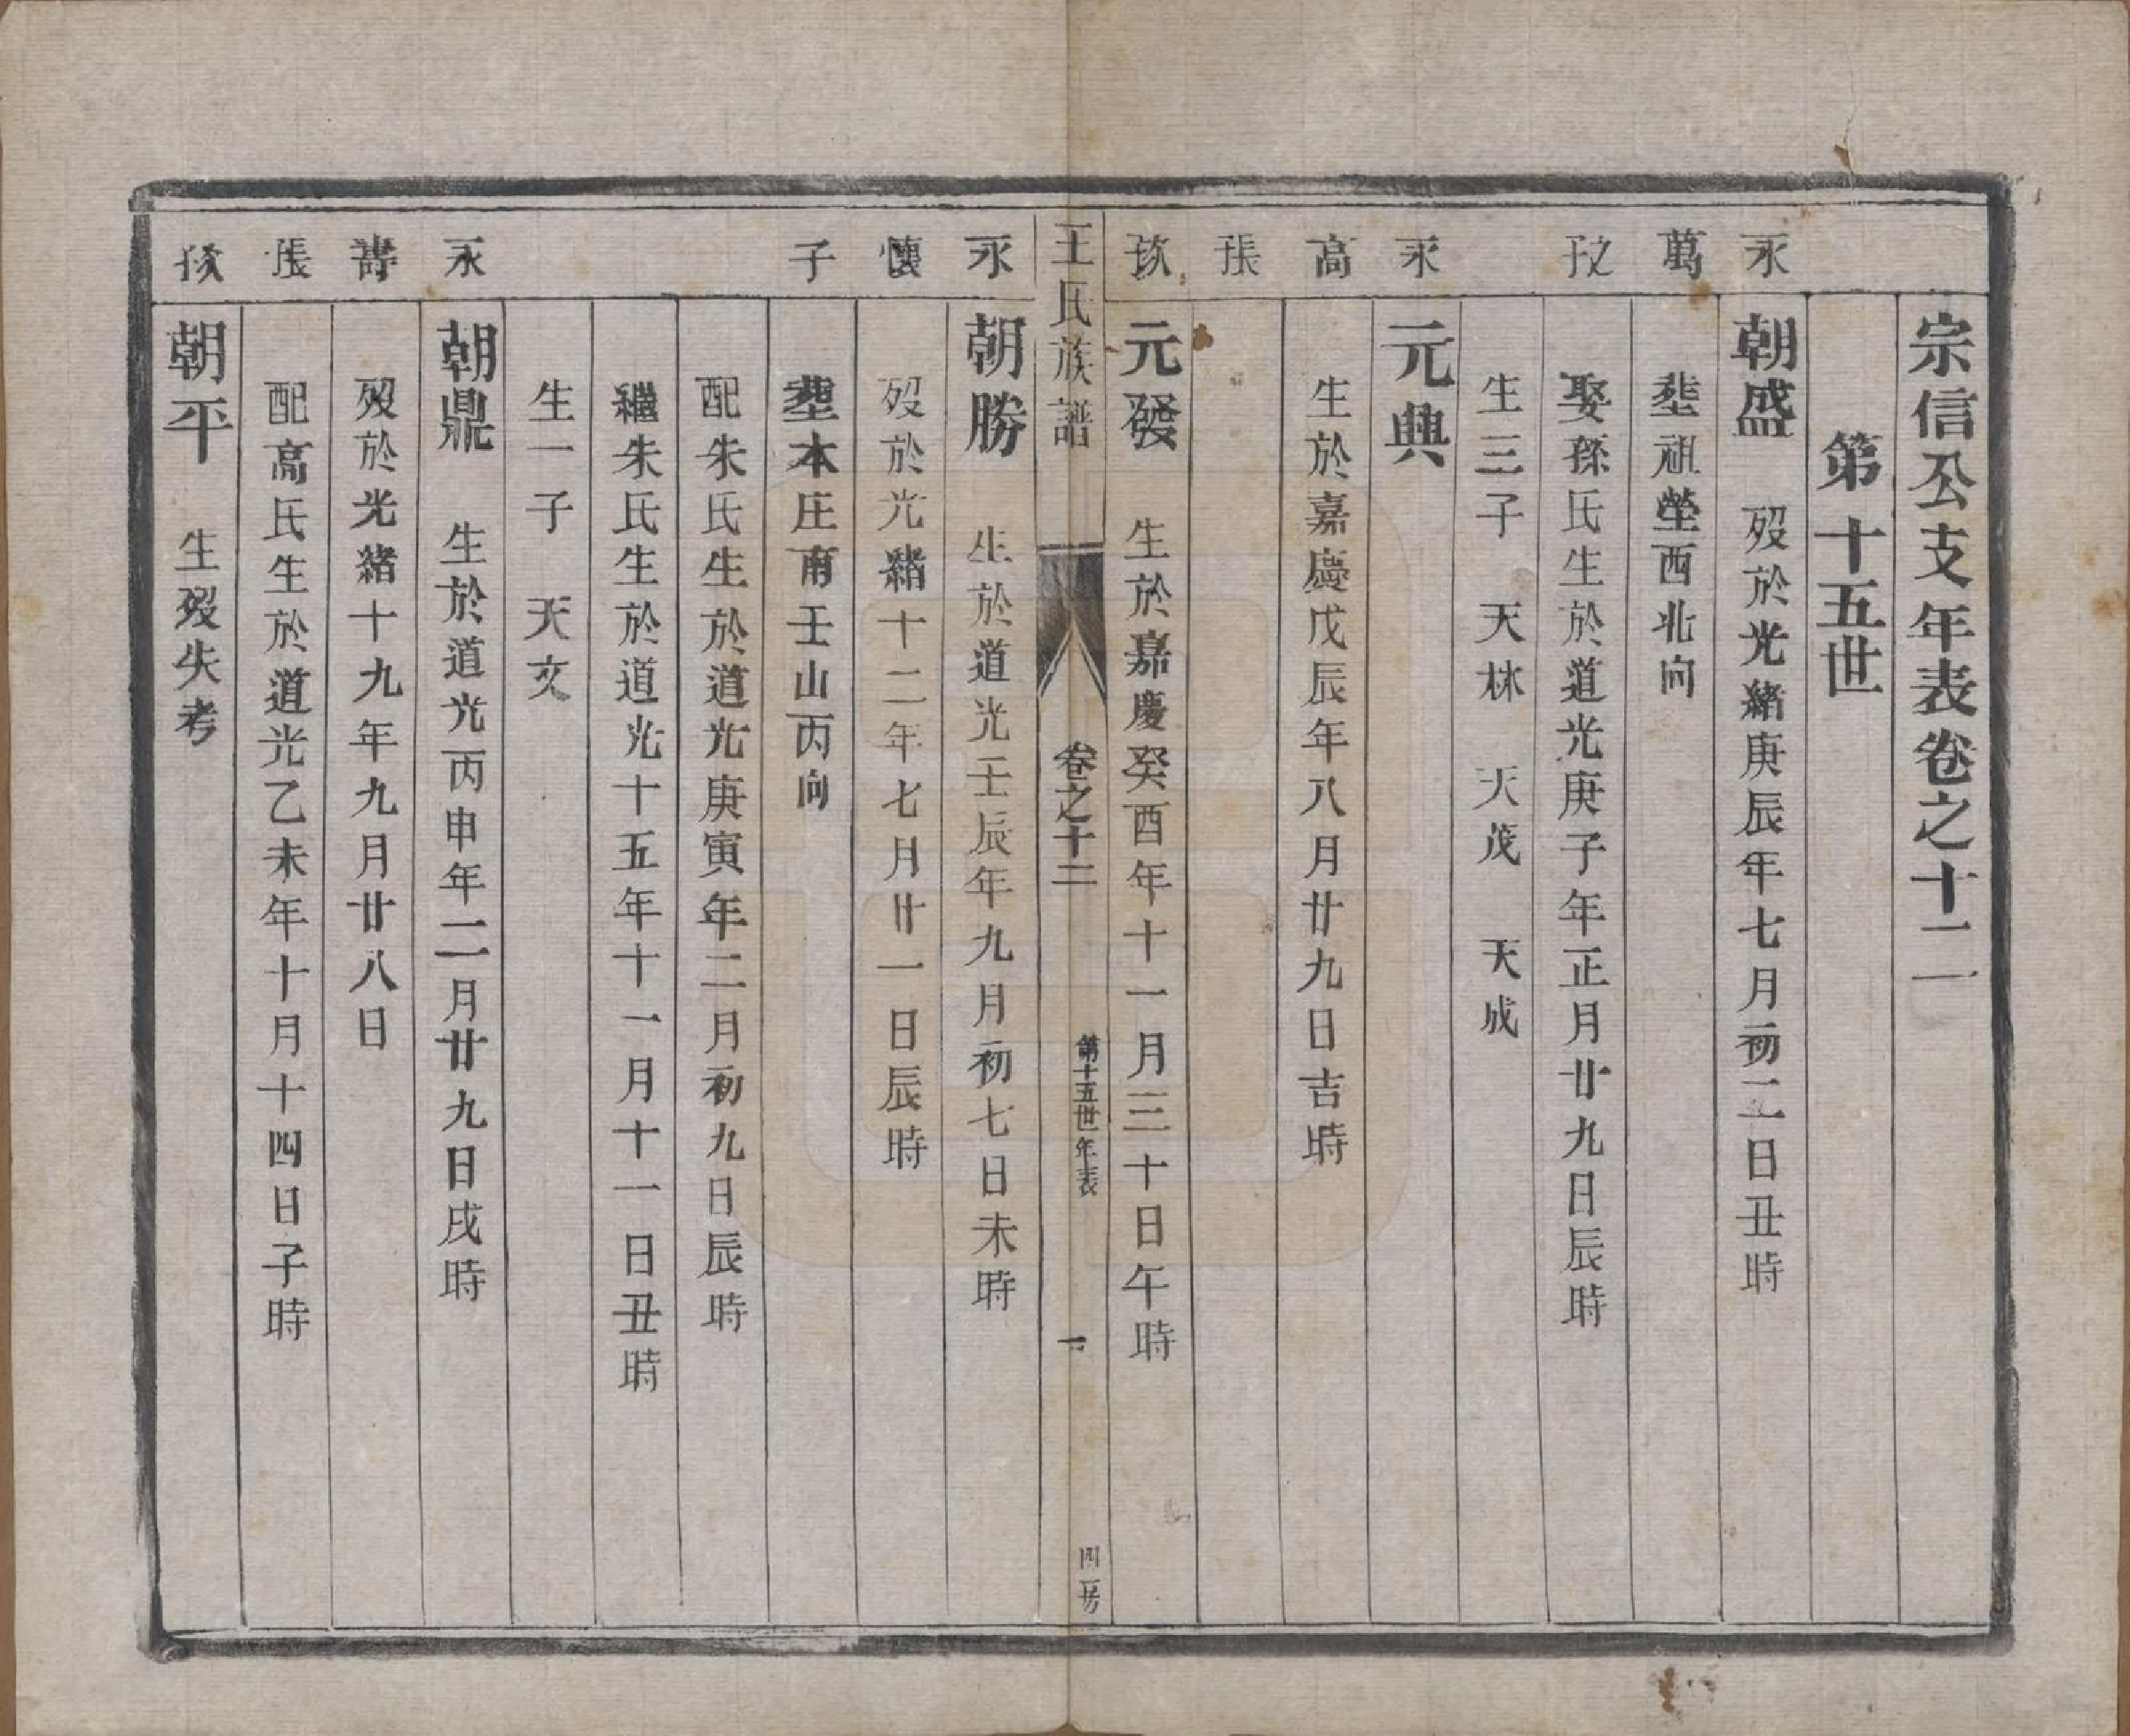 宗信公支年表卷之十二
第十五世
永 朝盛 歿於光緒庚辰年七月初二日丑時
萬 塟祖塋西北向
娶孫氏生於道光庚子年正月廿九日辰時
生三子 天林 天茂 天成
永 元典
高 生於嘉慶戊辰年八月廿九日吉時
張
元發 生於嘉慶癸酉年十一月三十日午時
王氏族譜 卷之十二 第十五世年表 一 四房
永 朝勝 生於道光壬辰年九月初七日未時
懷 歿於光緒十二年七月廿一日辰時
子 塟本庄南壬山丙向
配朱氏生於道光庚寅年二月初九日辰時
繼朱氏生於道光十五年十一月十一日丑時
生一子 天文
永 朝鼎 生於道光丙申年二月廿九日戌時
壽 歿於光緒十九年九月廿八日
張 配高氏生於道光乙未年十月十四日子時
朝平 生歿失考